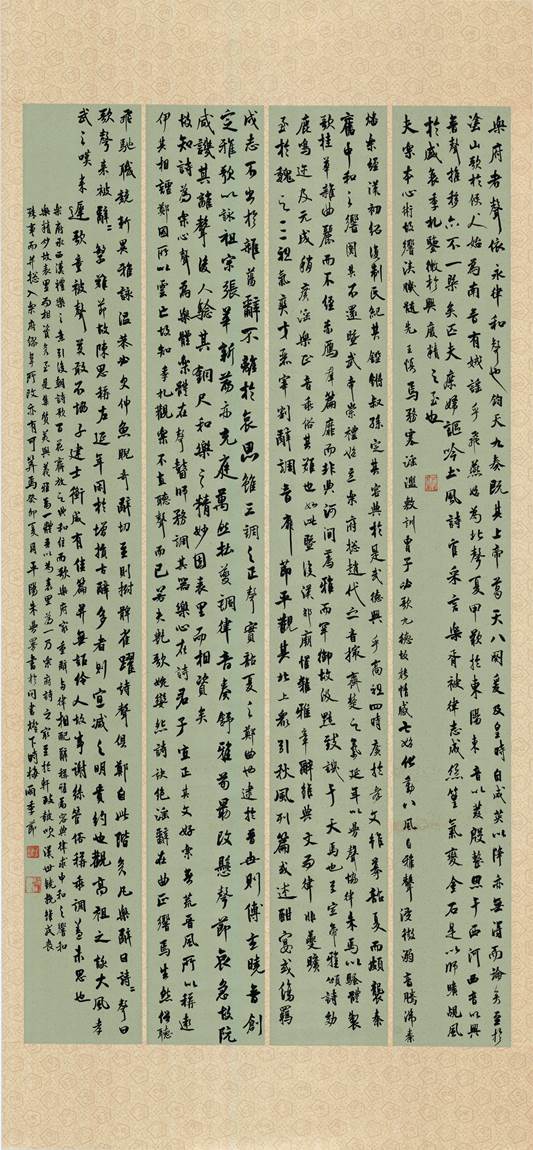 樂府者聲依永律和聲也鈞天九奏既其上帝葛天八闋爰及皇時自咸英以降亦無得而論矣至於
塗山歌於候人始為南音有娀謠乎飛燕始為北聲夏甲歎於東陽東音以發殷整思于西河西音以興
音聲推移亦不一概矣匹夫庶婦謳吟土風詩官采言樂胥被律志感絲篁氣變金石是以師曠覘風
於盛衰季札鑒微於興廢精之至也
夫樂本心術故響浹肌髓先王慎焉務塞淫濫敷訓胄子必歌九德故能情感七始化動八風自雅聲浸微溺音騰沸秦
燔樂經漢初紹復制氏紀其鏗鏘叔孫定其容典於是武德興乎高祖四時廣於孝文雖摹韶夏而頗襲秦
舊中和之響闃其不還暨武帝崇禮始立樂府總趙代之音撮齊楚之氣延年以曼聲協律朱馬以騷體製
歌桂華雜曲麗而不經赤雁群篇靡而非典河間薦雅而罕御故汲黯致譏于天馬也至宣帝雅頌詩効
鹿鳴邇及元成稍廣淫樂正音乖俗其難也如此暨後漢郊廟惟雜雅章辭雖典文而律非夔曠
至於魏之三祖氣爽才麗宰割辭調音靡節平觀其北上眾引秋風列篇或述酣宴或傷羈
戍志不出於雜蕩辭不離於哀思雖三調之正聲實韶夏之鄭曲也逮於晉世則傅玄曉音創
定雅歌以詠祖宗張華新篇亦充庭萬然杜夔調律音奏舒雅荀勖改懸聲節哀急故阮
咸譏其離聲後人驗其銅尺和樂之精妙固表里而相資矣
故知詩為樂心聲為樂體樂體在聲瞽師務調其器樂心在詩君子宜正其文好樂無荒晉風所以稱遠
伊其相謔鄭國所以雲亡故知季札觀樂不直聽聲而已若夫艷歌婉孌怨詩訣絕淫辭在曲正響焉生然俗聽
飛馳職競新異雅詠温恭必欠伸魚睨奇辭切至則拊髀雀躍詩聲俱鄭自此階矣凡樂辭曰詩〻聲曰
歌聲來被辭〻繁難節故陳思稱左延年閑於增損古辭多者則宜減之明貴約也觀高祖之詠大風孝
武之嘆來遲歌童被聲莫敢不協子建士衡咸有佳篇并無詔伶人故事謝絲管俗稱乖調蓋未思也